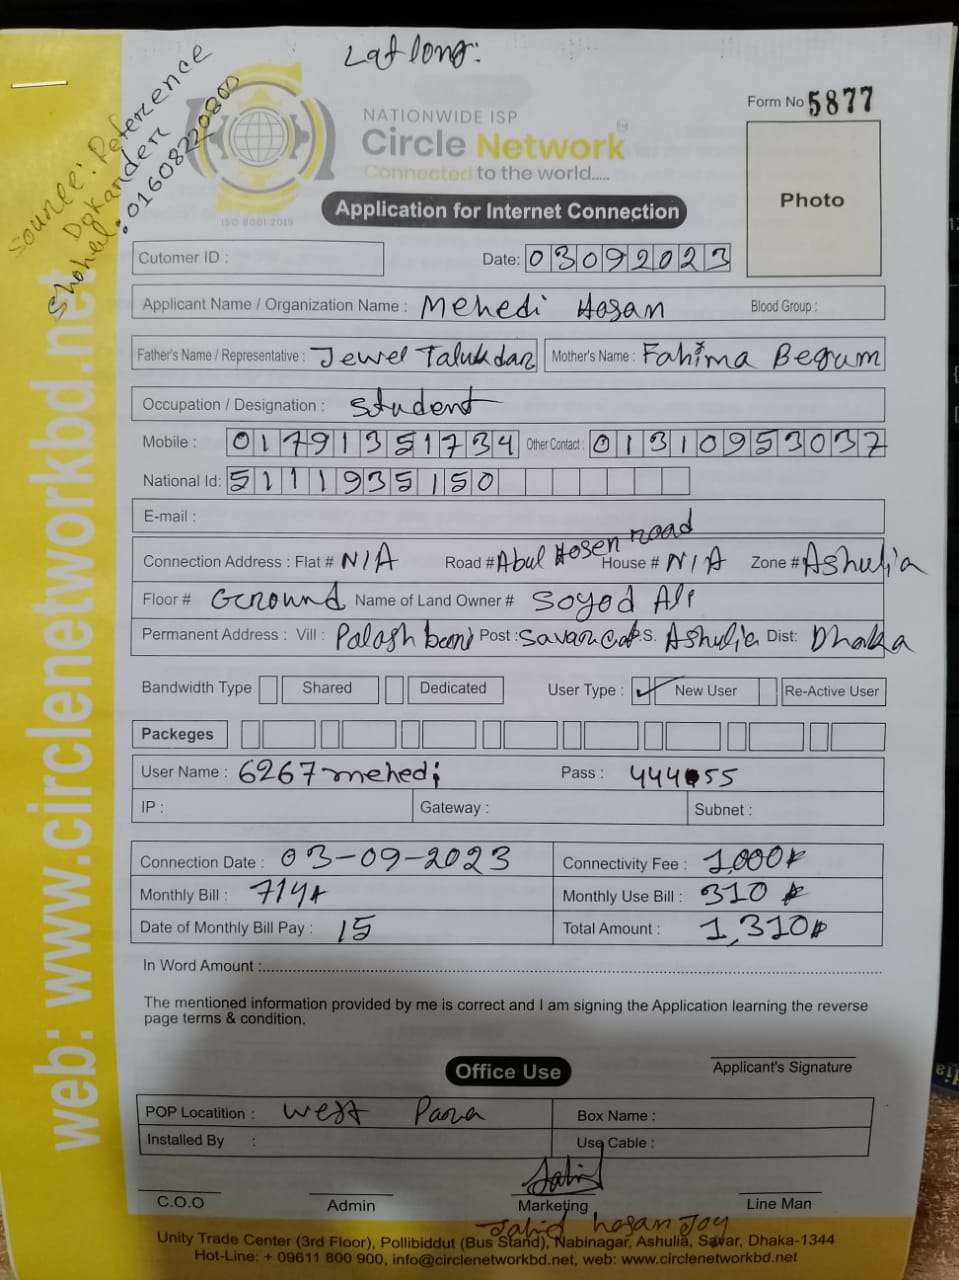 Lat long:
Source: Reference
Dokander
Shohel: 01608220800
Form No 5877
NATIONWIDE ISP
Circle Network
Connected to the world.....
ISO 9001:2015
Photo
Application for Internet Connection
Cutomer ID :
Date: 03092023
Applicant Name / Organization Name : Mehedi Hosan Blood Group :
Father's Name / Representative : Jewel Talukdar Mother's Name : Fahima Begum
Occupation / Designation : Student
Mobile : 01791351734 Other Contact : 01310953037
National Id: 5111935150
E-mail :
Connection Address : Flat # N/A Road # Abul Hosen road House # N/A Zone # Ashulia
Floor # Ground Name of Land Owner # Soyod Ali
Permanent Address : Vill : Palash bari Post : Savar P.S. Ashulia Dist: Dhaka
Bandwidth Type Shared Dedicated User Type : ✓ New User Re-Active User
Packeges
User Name : 6267mehedi Pass : 444055
IP : Gateway : Subnet :
Connection Date : 03-09-2023 Connectivity Fee : 1,000৳
Monthly Bill : 714৳ Monthly Use Bill : 310৳
Date of Monthly Bill Pay : 15 Total Amount : 1,310৳
In Word Amount :
The mentioned information provided by me is correct and I am signing the Application learning the reverse
page terms & condition.
Applicant's Signature
Office Use
POP Locatition : West Para Box Name :
Installed By : Use Cable :
Jahid
C.O.O Admin Marketing Line Man
Jahid hasan Joy
Unity Trade Center (3rd Floor), Pollibiddut (Bus Stand), Nabinagar, Ashulia, Savar, Dhaka-1344
Hot-Line: + 09611 800 900, info@circlenetworkbd.net, web: www.circlenetworkbd.net
web: www.circlenetworkbd.net